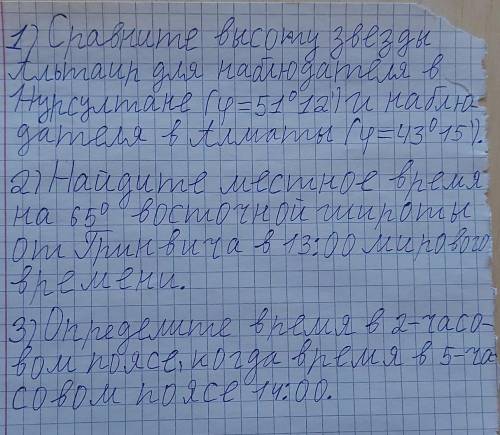 1) Сравните высоту звезды
Альтаир для наблюдателя в
Нурсултане (φ=51°12') и наблю-
дателя в Алматы (φ=43°15').
2) Найдите местное время
на 65° восточной широты
от Гринвича в 13:00 мирового
времени.
3) Определите время в 2-часо-
вом поясе, когда время в 5-ча
совом поясе 14:00.